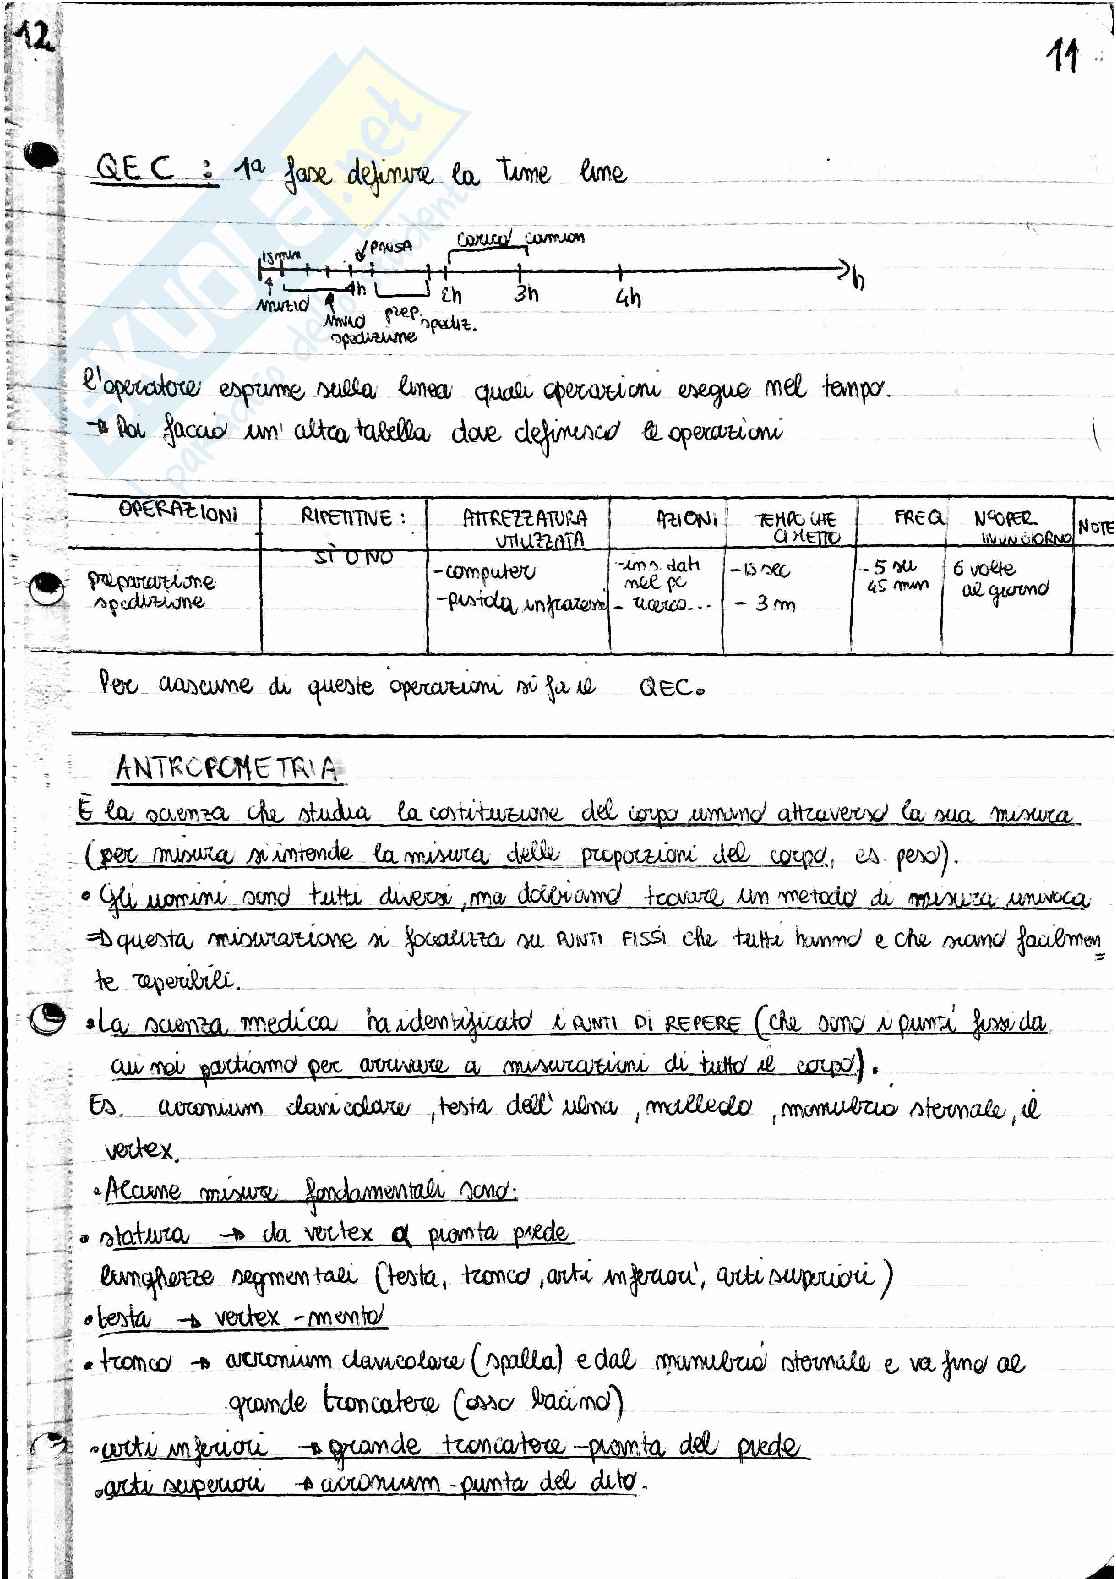 12
11
QEC : 1ª fase definire la time line
15min
PAUSA
carico camion
h
1h
2h
3h
4h
inizio
inizio spedizione
prep. spediz.
l'operatore esprime sulla linea quali operazioni esegue nel tempo.
→ Poi faccio un' altra tabella dove definisco le operazioni
OPERAZIONI
RIPETITIVE : SÌ O NO
ATTREZZATURA UTILIZZATA
AZIONI
TEMPO CHE CI METTO
FREQ
N° OPER. IN UN GIORNO
NOTE
preparazione spedizione
-computer
-pistola infrarossi
-ins. dati nel pc
- ricerca...
-15 sec
- 3 m
- 5 su 45 min
6 volte al giorno
Per ciascune di queste operazioni si fa il QEC.
ANTROPOMETRIA
È la scienza che studia la costituzione del corpo umano attraverso la sua misura
(per misura si intende la misura delle proporzioni del corpo, es peso).
• Gli uomini sono tutti diversi, ma dobbiamo trovare un metodo di misura univoca
⇒ questa misurazione si focalizza su PUNTI FISSI che tutti hanno e che siano facilmen
te reperibili.
• La scienza medica ha identificato i PUNTI DI REPERE (che sono i punti fissi da
cui noi partiamo per arrivare a misurazioni di tutto il corpo).
Es. acronium clavicolare, testa dell' ulna, malleolo, manubrio sternale, il
vertex.
• Alcune misure fondamentali sono:
• statura → da vertex a pianta piede
lunghezze segmentali (testa, tronco, arti inferiori, arti superiori)
• testa → vertex - mento
• tronco → acronium clavicolare (spalla) e dal manubrio sternale e va fino al
grande troncatere (osso bacino)
• arti inferiori → grande troncatere - pianta del piede
• arti superiori → acronium - punta del dito.
SKUOLA.net